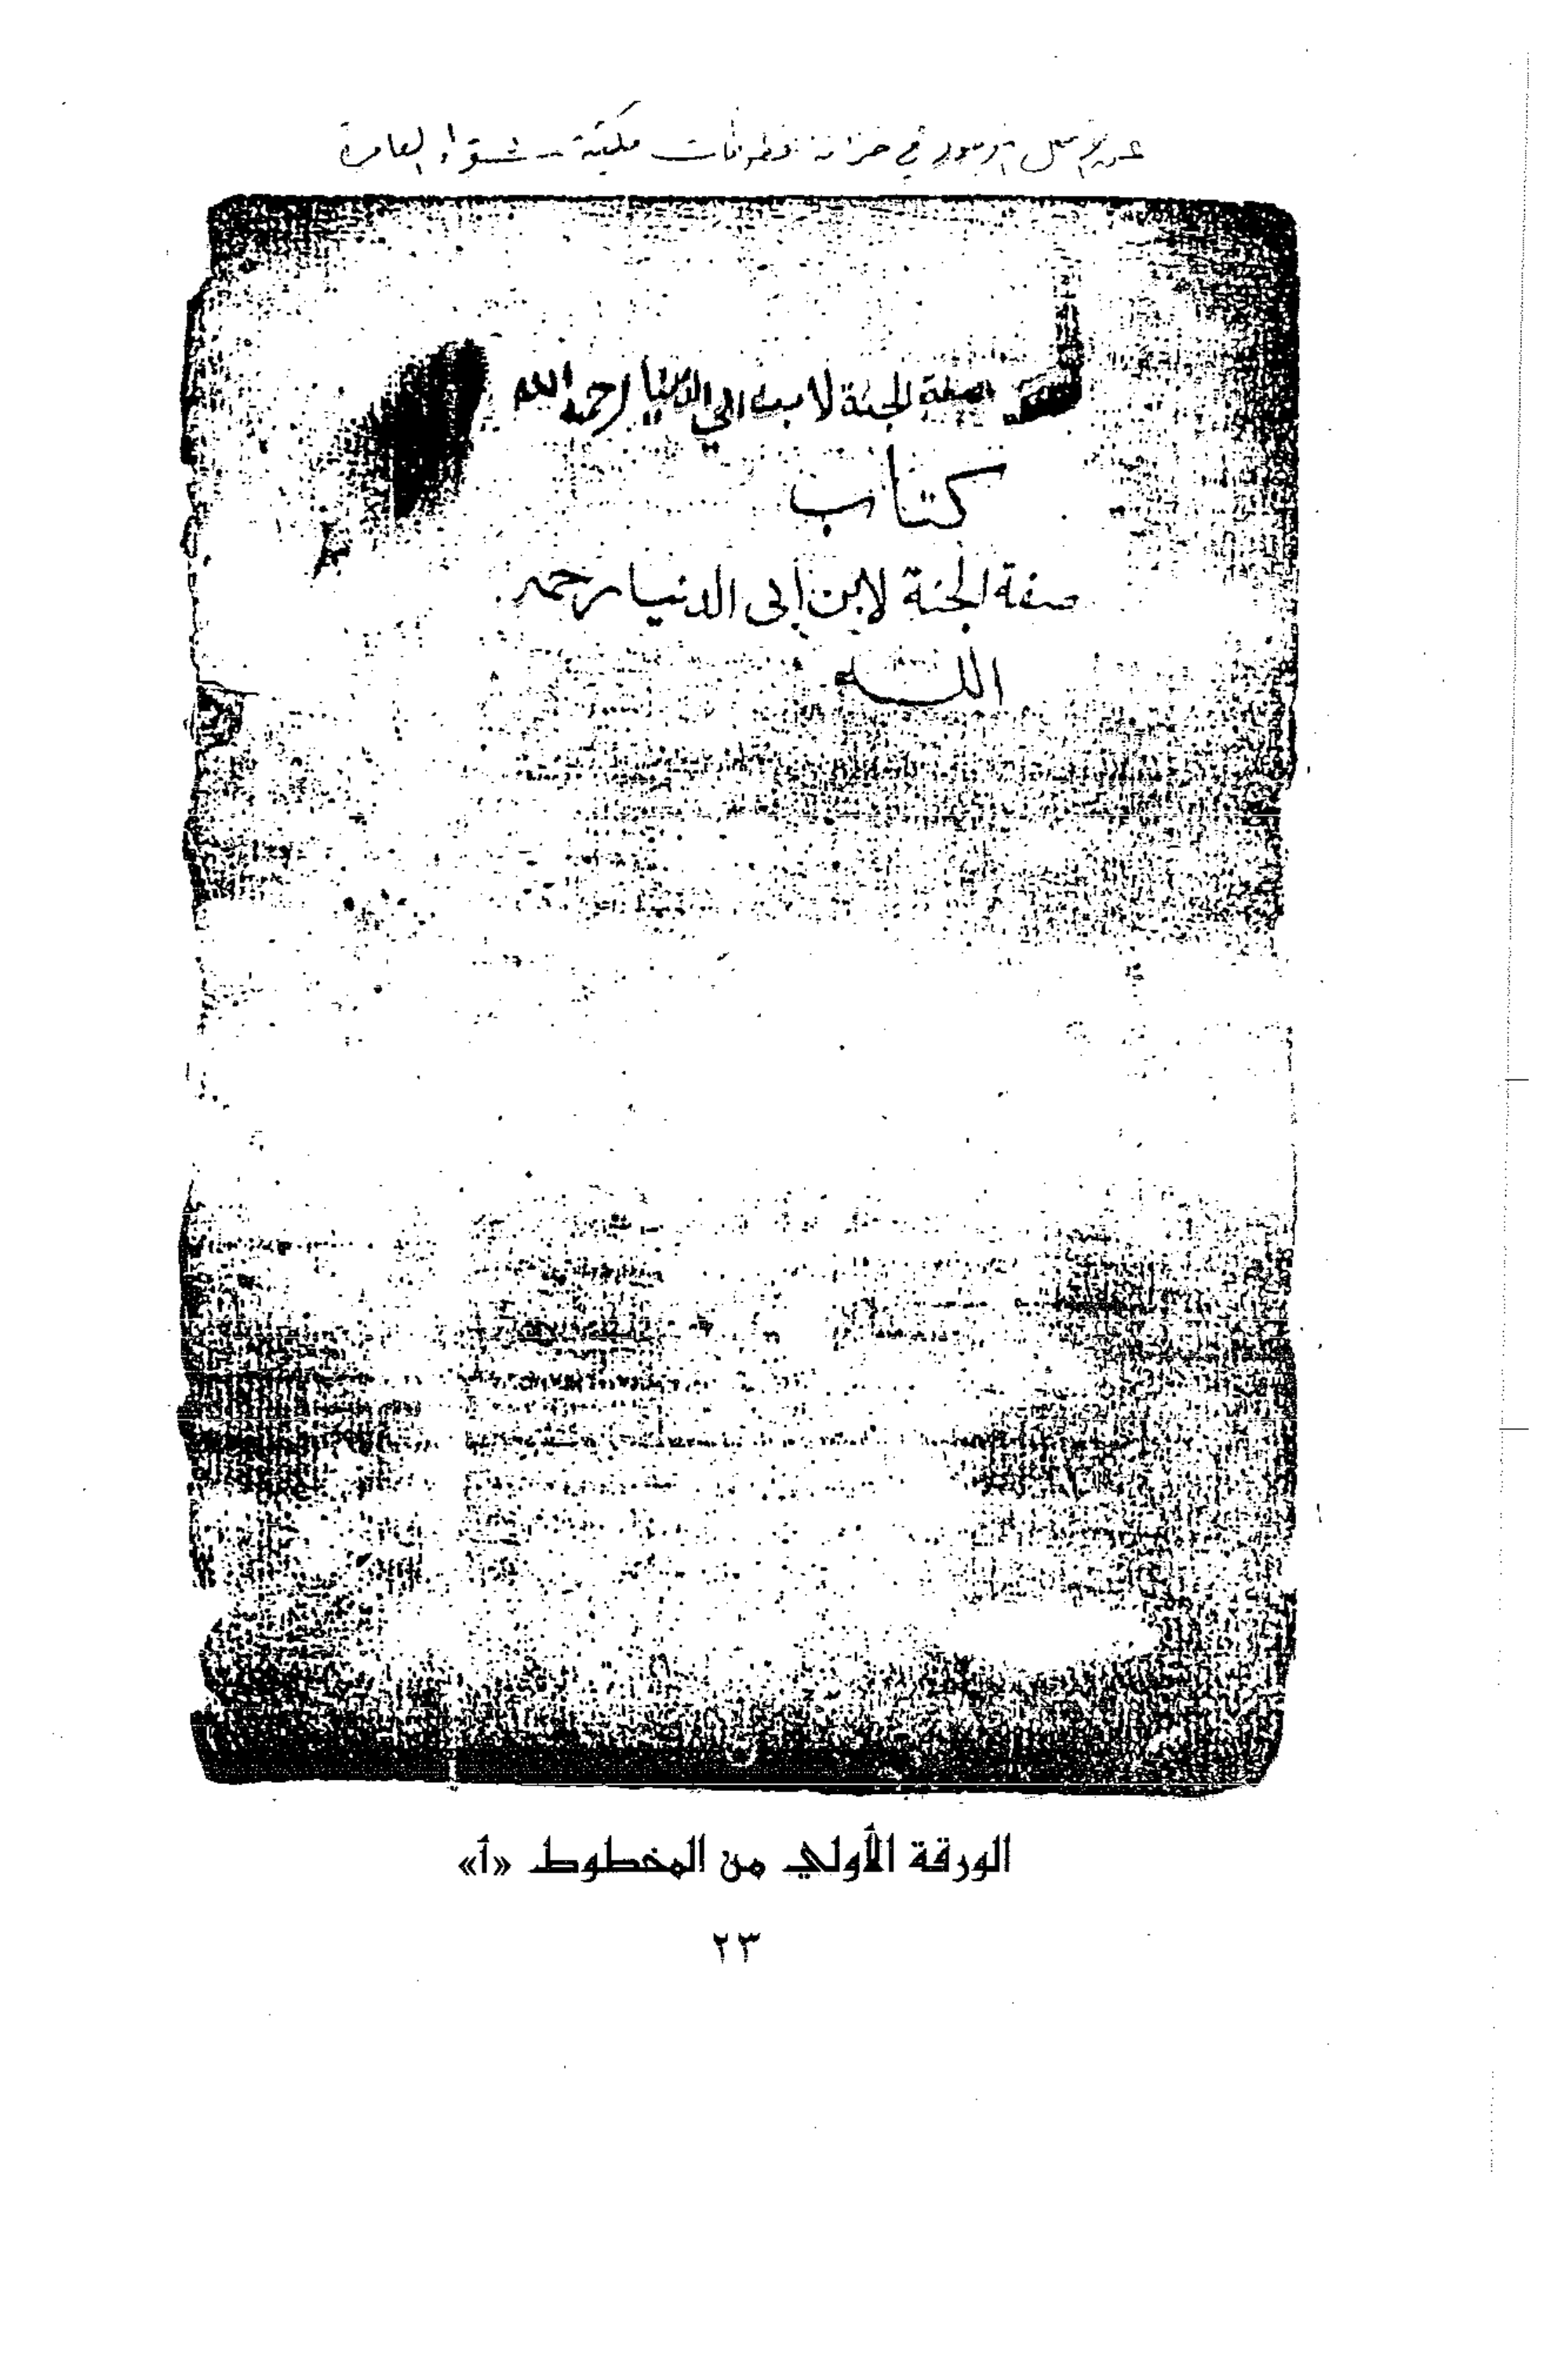 في خزانة مخطوطات مكتبة العامرة
صفة الجنة لابن ابي الدنيا رحمه الله
كتاب
صفة الجنة لابن ابى الدنيا رحمه
الله
الورقة الأولي من المخطوط «أ»
٢٣